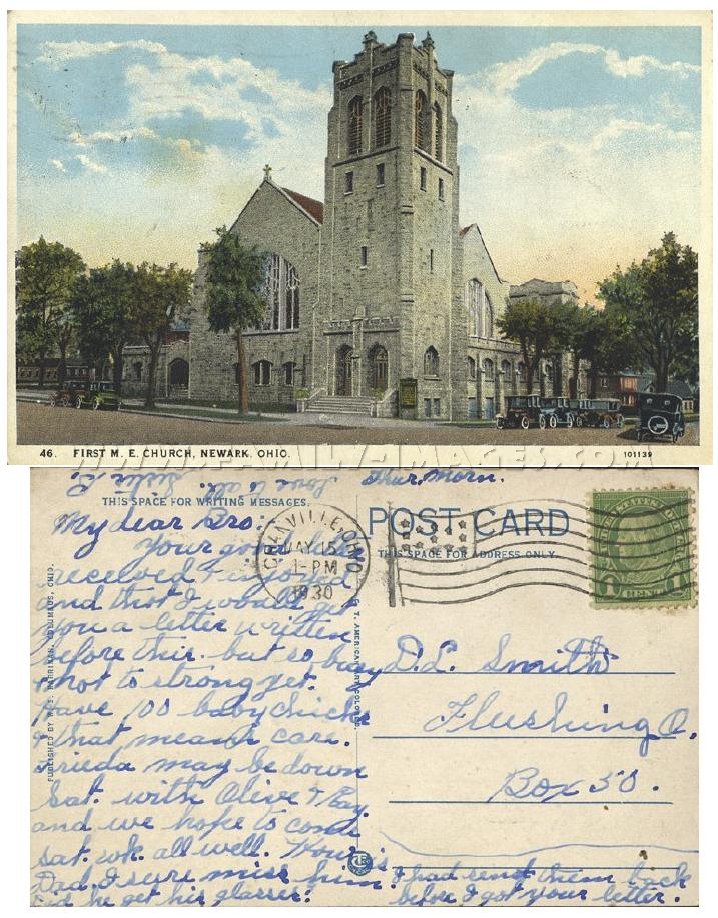 46. FIRST M. E. CHURCH, NEWARK, OHIO.
101139
WWW.FAMILY-IMAGES.COM
Love to all. Sister L.
Thur. Morn.
THIS SPACE FOR WRITING MESSAGES.
POST CARD
THIS SPACE FOR ADDRESS ONLY.
GRANVILLE, OHIO
MAY 15
1-PM
1930
My dear Bro.
Your good letter
received & enjoyed
and thot I would get
you a letter written
before this. but so busy
& not to strong yet.
Have 100 baby chicks
& that means care.
Frieda may be down
Sat. with Olive & Ray.
and we hope to come
sat. wk. all well. How is
Dad. I sure miss him.
did he get his glasses.
I had send them back
before I got your letter.
D. L. Smith
Flushing O.
Box 50.
PUBLISHED BY W. E. HARRIMAN, COLUMBUS, OHIO.
C. T. AMERICAN ART COLORED